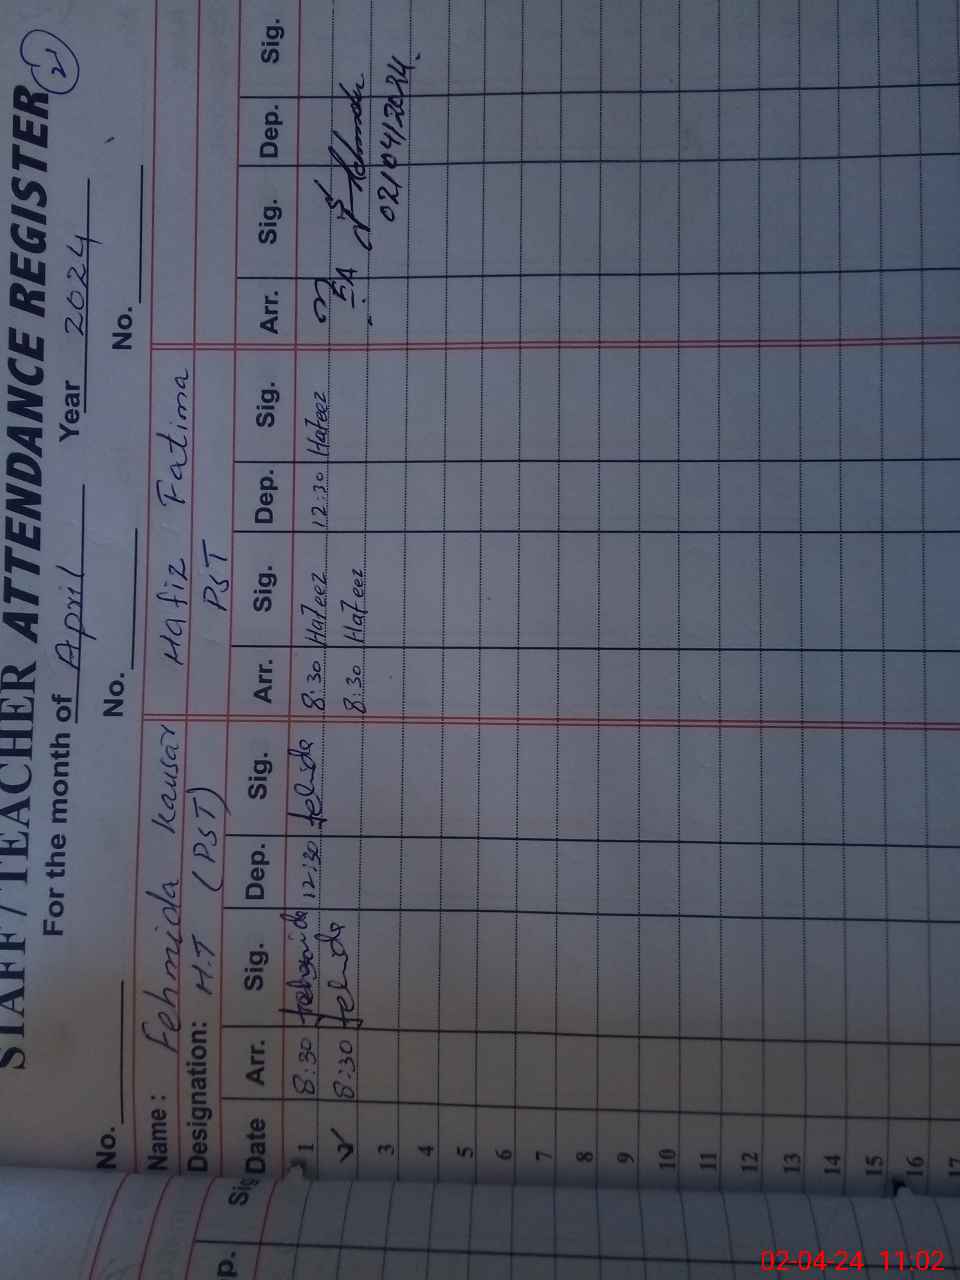 STAFF / TEACHER ATTENDANCE REGISTER 2
For the month of April Year 2024
No. No. No.
Name: Fehmida Kausar Hafiz Fatima
Designation: H.T (PST) PST
Date Arr. Sig. Dep. Sig. Arr. Sig. Dep. Sig. Arr. Sig. Dep. Sig.
1 8:30 12:30 8:30 Hafeez 12:30 Hafeez
8:30 8:30 Hafeez
3
02/04/2024
4
5
6
7
8
9
10
11
12
13
14
15
16
17
p. Sig
02-04-24 11:02